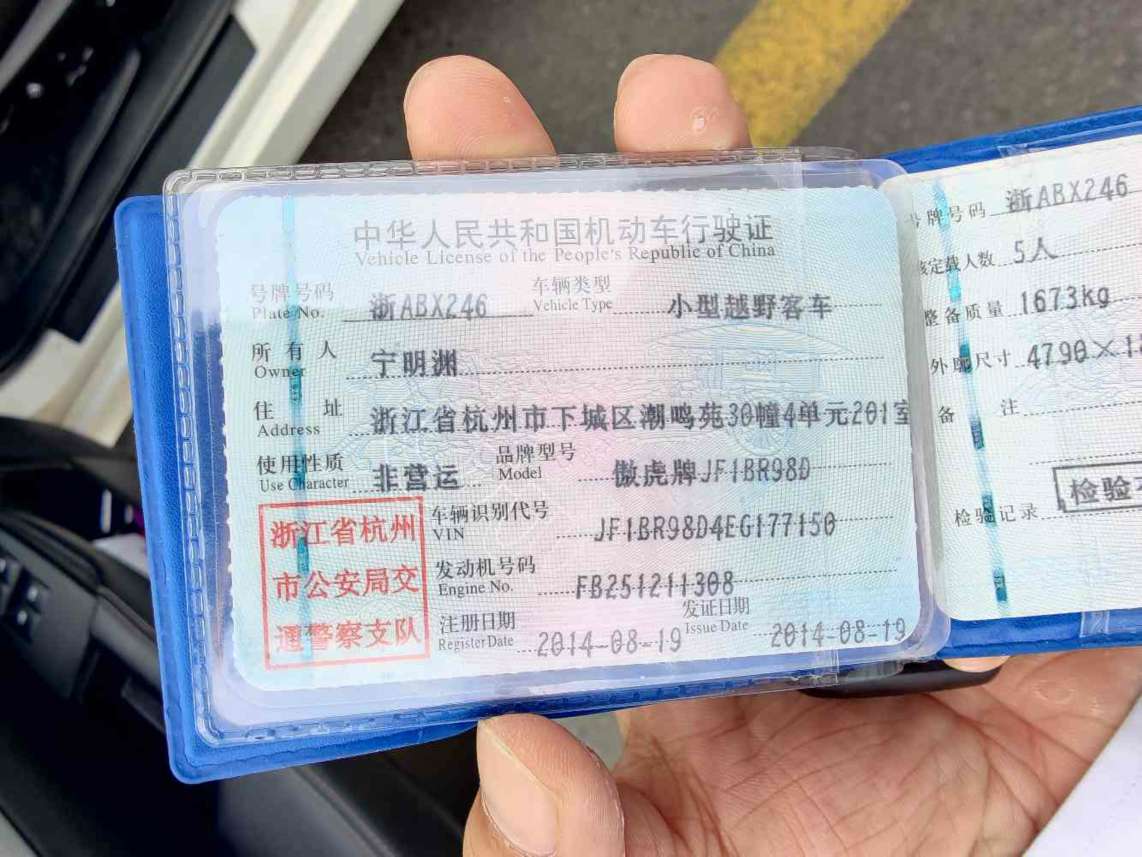 中华人民共和国机动车行驶证
Vehicle License of the People's Republic of China
号牌号码 浙ABX246 车辆类型 小型越野客车
Plate No. Vehicle Type
所有人 宁明渊
Owner
住址 浙江省杭州市下城区潮鸣苑30幢4单元201室
Address
使用性质 非营运 品牌型号 傲虎牌JF1BR98D
Use Character Model
浙江省杭州
市公安局交
通警察支队
车辆识别代号 JF1BR98D4EG177150
VIN
发动机号码 FB251211308
Engine No.
注册日期 2014-08-19 发证日期 2014-08-19
Register Date Issue Date
牌号码 浙ABX246
定载人数 5人
整备质量 1673kg
外廓尺寸 4790×18
备注
检验记录 检验